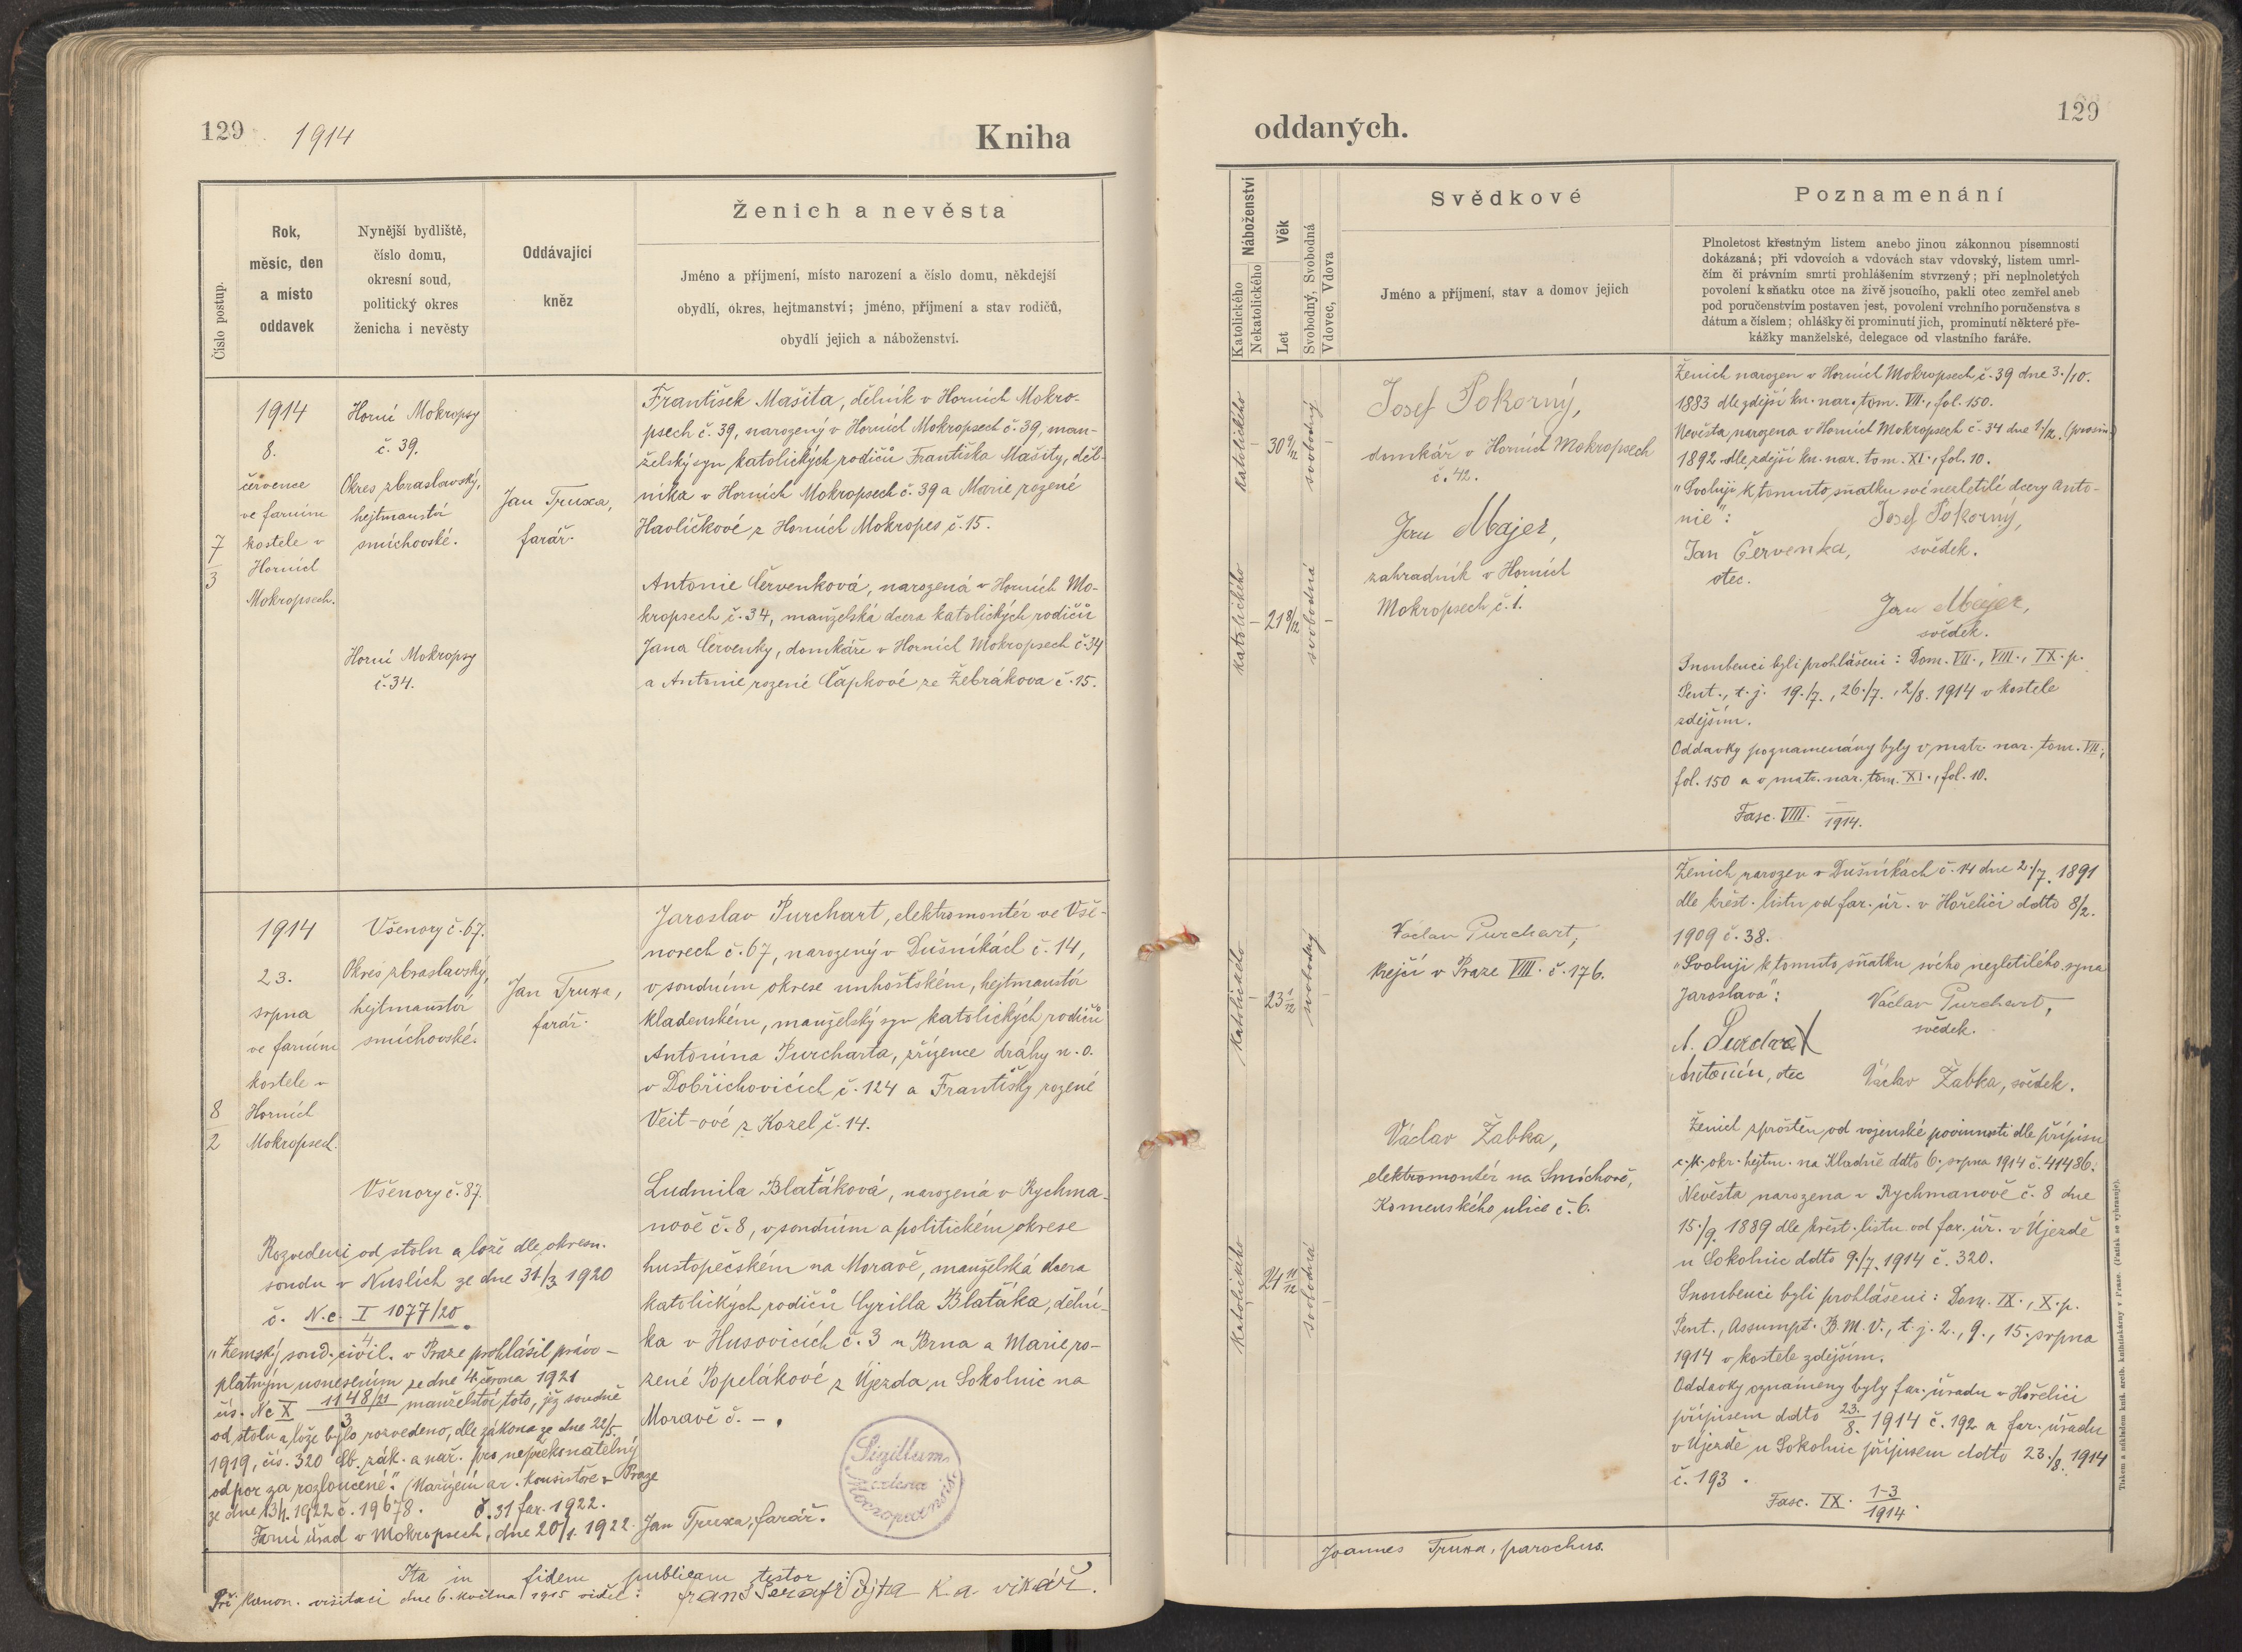 129
1914
Kniha
Číslo postup.
Rok,
měsíc, den
a místo
oddavek
Nynější bydliště,
číslo domu,
okresní soud,
politický okres
ženicha i nevěsty
Oddávající
kněz
Ženich a nevěsta
Jméno a příjmení, místo narození a číslo domu, někdejší
obydlí, okres, hejtmanství; jméno, příjmení a stav rodičů,
obydlí jejich a náboženství.
7
3
1914
8.
července
ve farním
kostele v
Horních
Mokropsech.
Horní Mokropsy
č. 39.
Okres zbraslavský,
hejtmanství
smíchovské.
Horní Mokropsy
č. 34.
Jan Truxa,
farář.
František Mašita, dělník v Horních Mokro-
psech č. 39, narozený v Horních Mokropsech č. 39, man-
želský syn katolických rodičů Františka Mašity, děl-
níka v Horních Mokropsech č. 39 a Marie rozené
Havlíčkové z Horních Mokropes č. 15.
Antonie Červenková, narozená v Horních Mo-
kropsech č. 34, manželská dcera katolických rodičů
Jana Červenky, domkáře v Horních Mokropsech č. 34
a Antonie rozené Čapkové ze Žebrákova č. 15.
8
2
1914
23.
srpna
ve farním
kostele v
Horních
Mokropsech.
Všenory č. 67.
Okres zbraslavský,
hejtmanství
smíchovské.
Všenory č. 87.
Jan Truxa,
farář.
Jaroslav Purchart, elektromontér ve Vše-
norech č. 67, narozený v Dušníkách č. 14,
v soudním okrese unhošťském, hejtmanství
kladenském, manželský syn katolických rodičů
Antonína Purcharta, zřízence dráhy n. o.
v Dobřichovicích č. 124 a Františky rozené
Veit-ové z Kozel č. 14.
Ludmila Blatáková, narozená v Rychma-
nově č. 8, v soudním a politickém okrese
hustopečském na Moravě, manželská dcera
katolických rodičů Cyrilla Blatáka, dělní-
ka v Husovicích č. 3 u Brna a Marie ro-
zené Popelákové z Újezda u Sokolnic na
Moravě č. – .
Rozvedeni od stolu a lože dle okresn.
soudu v Nuslích ze dne 31./3. 1920
č. N.c. I 1077/20
4.
"Zemský soud civil. v Praze prohlásil právo-
platným usnesením ze dne 4. června 1921
čís. Nc X 1148/21 manželství toto, jež soudně
3
od stolu a lože bylo rozvedeno, dle zákona ze dne 22/5.
1919, čís. 320 Sb. zák. a nař. pro nepřekonatelný
odpor za rozloučené." (Nařízení ar. konsistoře v Praze
ze dne 13/1. 1922 č. 19678. č. 31 far. 1922.
Farní úřad v Mokropsech, dne 20/1. 1922. Jan Truxa, farář.
Sigillum
Mocropsensis
Ita in fidem publicam testor:
Při kanon. visitaci dne 6. května 1915 viděl: K. a. vikář.
oddaných.
129
Náboženství
Katolického
Nekatolického
Věk
Let
Svobodný, Svobodná
Vdovec, Vdova
Svědkové
Jméno a příjmení, stav a domov jejich
Poznamenání
Plnoletost křestným listem anebo jinou zákonnou písemností
dokázaná; při vdovcích a vdovách stav vdovský, listem umrl-
čím či právním smrti prohlášením stvrzený; při neplnoletých
povolení k sňatku otce na živě jsoucího, pakli otec zemřel aneb
pod poručenstvím postaven jest, povolení vrchního poručenstva s
dátum a číslem; ohlášky či prominutí jich, prominutí některé pře-
kážky manželské, delegace od vlastního faráře.
katolického
–
30 9/12
svobodný
–
katolického
–
21 8/12
svobodná
–
Josef Pokorný,
domkář v Horních Mokropsech
č. 42.
Jan Majer,
zahradník v Horních
Mokropsech č. 1.
Ženich narozen v Horních Mokropsech č. 39 dne 3./10.
1883 dle zdejší kn. nar. tom. VII., fol. 150.
Nevěsta narozena v Horních Mokropsech č. 34 dne 1./12. (prosin.)
1892 dle zdejší kn. nar. tom. XI., fol. 10.
"Svoluji k tomuto sňatku své nezletilé dcery Anto-
nie":
Josef Pokorný,
Jan Červenka, svědek.
otec.
Jan Majer,
svědek.
Snoubenci byli prohlášeni: Dom. VII., VIII., IX. p.
Pent., t. j. 19./7., 26./7., 2/8. 1914 v kostele
zdejším.
Oddavky poznamenány byly v matr. nar. tom. VII.,
fol. 150 a v matr. nar. tom. XI., fol. 10.
Fasc. VIII. –
1914.
katolického
–
23 1/12
svobodný
–
katolického
24 11/12
svobodná
–
Václav Purchart,
krejčí v Praze VIII. č. 176.
Václav Žabka,
elektromontér na Smíchově,
Komenského ulice č. 6.
Ženich narozen v Dušníkách č. 14 dne 2./7. 1891
dle křest. listu od far. úř. v Hořelici ddto 8/2.
1909 č. 38.
"Svoluji k tomuto sňatku svého nezletilého syna
Jaroslava":
Václav Purchart,
svědek.
Antonín, otec
Václav Žabka, svědek.
Ženich zproštěn od vojenské povinnosti dle přípisu
c. k. okr. hejtm. na Kladně ddto 6. srpna 1914 č. 41486.
Nevěsta narozena v Rychmanově č. 8 dne
15./9. 1889 dle křest. listu od far. úř. v Újezdě
u Sokolnic ddto 9./7. 1914 č. 320.
Snoubenci byli prohlášeni: Dom. IX., X. p.
Pent., Assumpt. B. M. V., t. j. 2., 9., 15. srpna
1914 v kostele zdejším.
Oddavky oznámeny byly far. úřadu v Hořelici
přípisem ddto 23./8. 1914 č. 192 a far. úřadu
v Újezdě u Sokolnic přípisem ddto 23./8. 1914
č. 193.
Fasc. IX. 1-3
1914.
Joannes Truxa, parochus.
Tiskem a nákladem kníž. arcib. knihtiskárny v Praze. (Patisk se vyhrazuje).